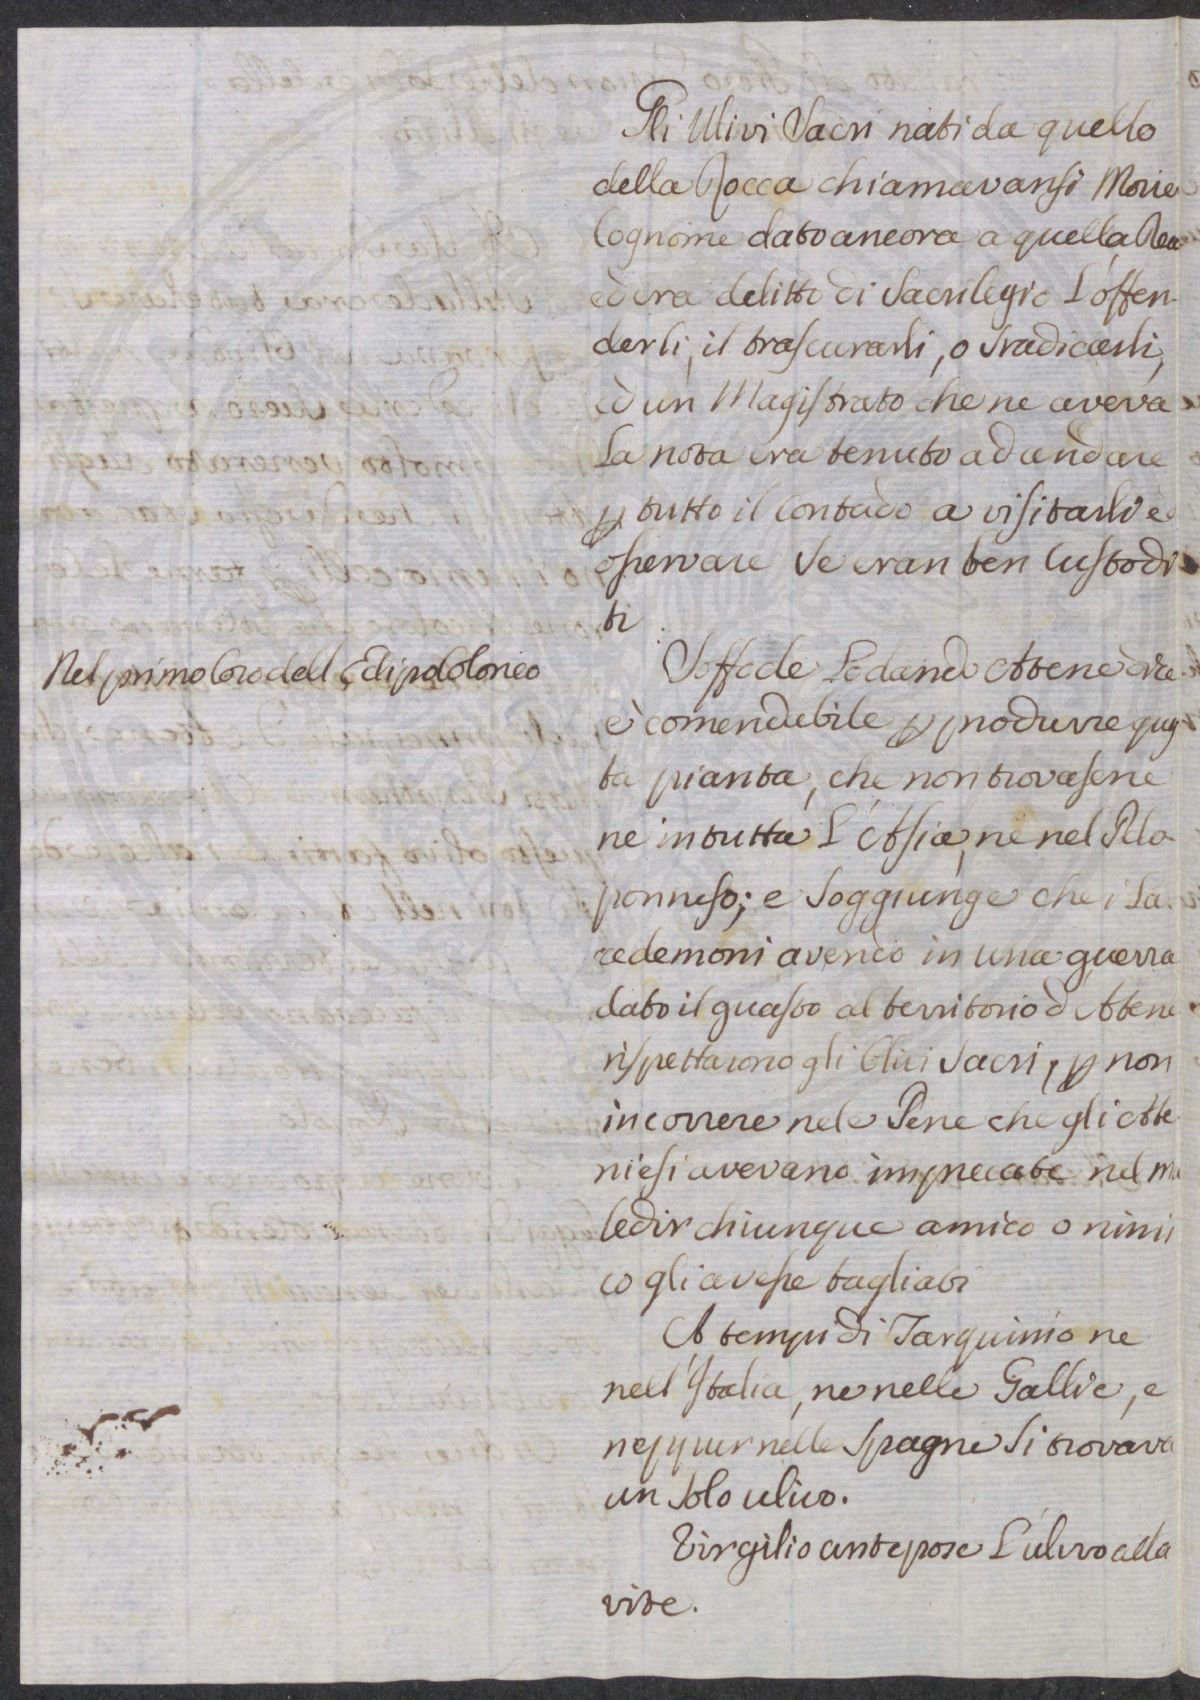 Gli Ulivi Sacri nati da quello
della Rocca chiamavansi Morie
Cognome dato ancora a quella Dea
ed era delitto di Sacrilegio l'offen-
derli, il trascurarli, o sradicarli,
ed un Magistrato che ne aveva
la nota era tenuto ad andare
p tutto il contado a visitarli ed
osservare se eran ben custodi
ti
Nel primo Coro dell Edipo Coloneo
Soffocle lodando Attene dice
è comendabile p produrre ques
ta pianta, che non trovasene
ne in tutta l'Asia, ne nel Pelo
ponneso; e soggiunge che i La
cedemoni avendo in una guerra
dato il guasto al territorio d Atene
rispettarono gli Ulivi Sacri, p non
incorrere nele Pene che gli Atte
niesi avevano imprecate nel ma
ledir chiunque amico o nimi
co gli avesse tagliati
A tempi di Tarquinio ne
nell'Italia, ne nelle Gallie, e
neppur nelle Spagne si trovava
un solo ulivo.
Virgilio antepose l'ulivo alla
vite.